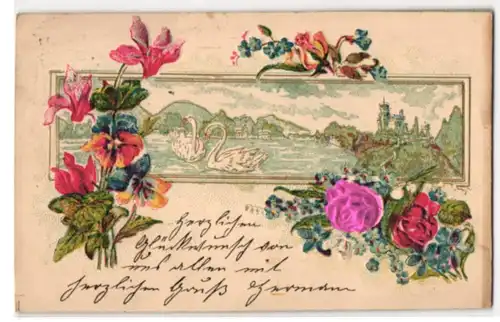 Herzlichen
Glückwunsch von
uns allen mit
herzlichen Gruß Hermann